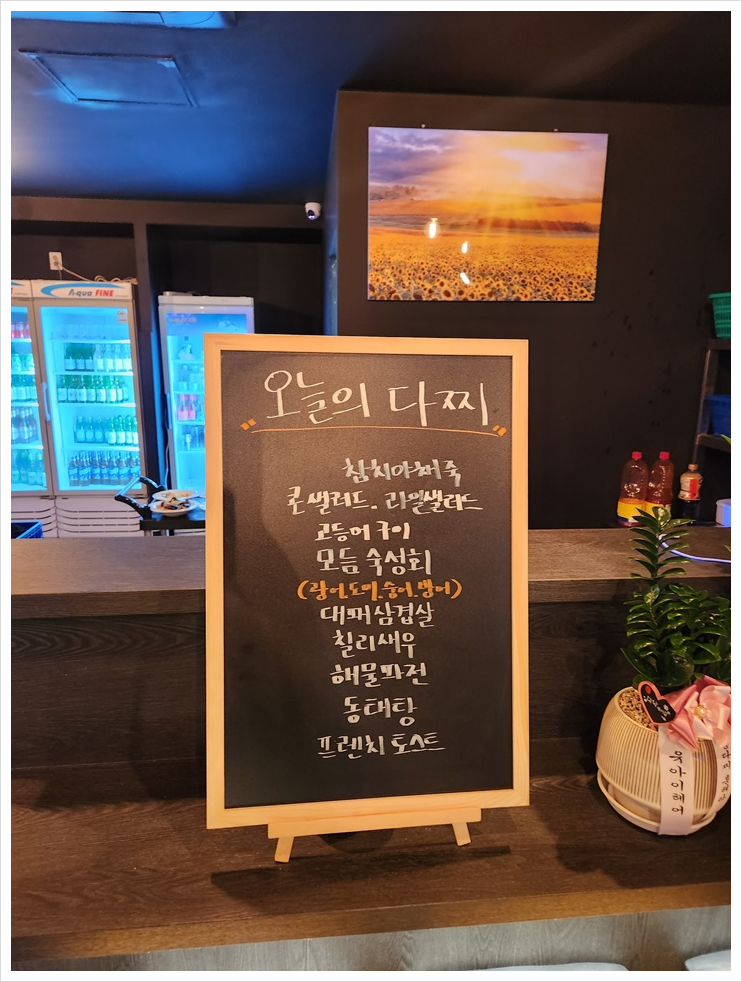 Aqua FINE
"오늘의 다찌"
참치야채죽
콘샐러드. 과일샐러드
고등어 구이
모듬 숙성회
(광어.도미.숭어.방어)
대패삼겹살
칠리새우
해물파전
동태탕
프렌치 토스트
윳아이헤어